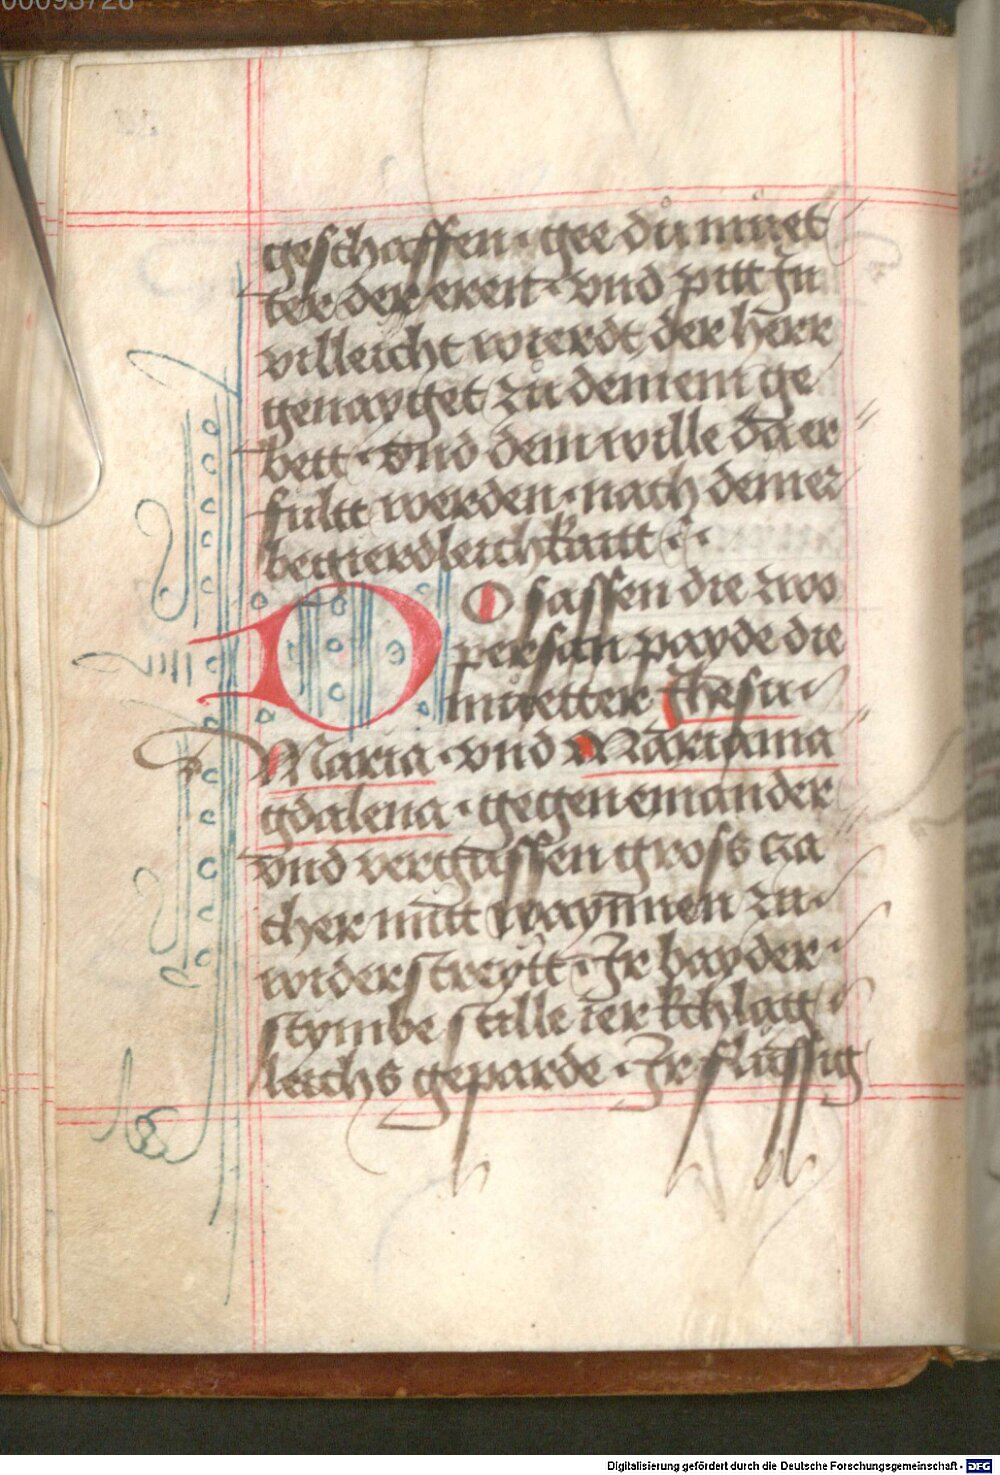 geschaffen · gee du muet
ter der eren · vnd pitt In
villeicht wierdt der herr
genayget zu deinem ge
bett · Vnd dein wille da er
fultt werden · nach deiner
begierdleichkaitt :·
DO sassen die zwo
persan payde die
muetter Jhesu
Maria · vnd Mariama
gdalena · gegen einander
vnd vergussen gross za
cher mitt waynnen zu
widerstreytt · Ir bayder
stymbe stille ier kchlag
leichs geparde · Ir flussig
Digitalisierung gefördert durch die Deutsche Forschungsgemeinschaft - DFG